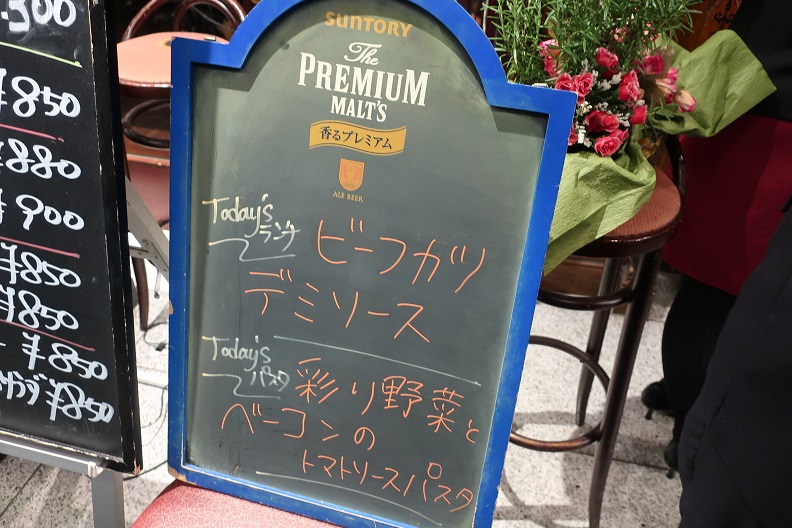 .300
¥850
¥880
¥900
¥850
¥850
¥850
¥850
SUNTORY
The
PREMIUM
MALT'S
香るプレミアム
ALE BEER
Today's
ランチ
ビーフカツ
デミソース
Today's
パスタ
彩り野菜と
ベーコンの
トマトソースパスタ